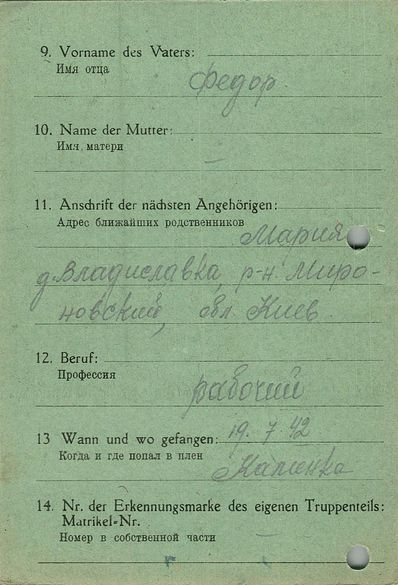 9. Vorname des Vaters:
Имя отца
Федор.
10. Name der Mutter:
Имя матери
—
11. Anschrift der nächsten Angehörigen:
Адрес ближайших родственников
Мария
д. Владиславка, р-н. Миро-
новский, обл. Киев.
12. Beruf:
Профессия
рабочий
13 Wann und wo gefangen: 19. 7. 42
Когда и где попал в плен
Калинка
14. Nr. der Erkennungsmarke des eigenen Truppenteils:
Matrikel-Nr.
Номер в собственной части